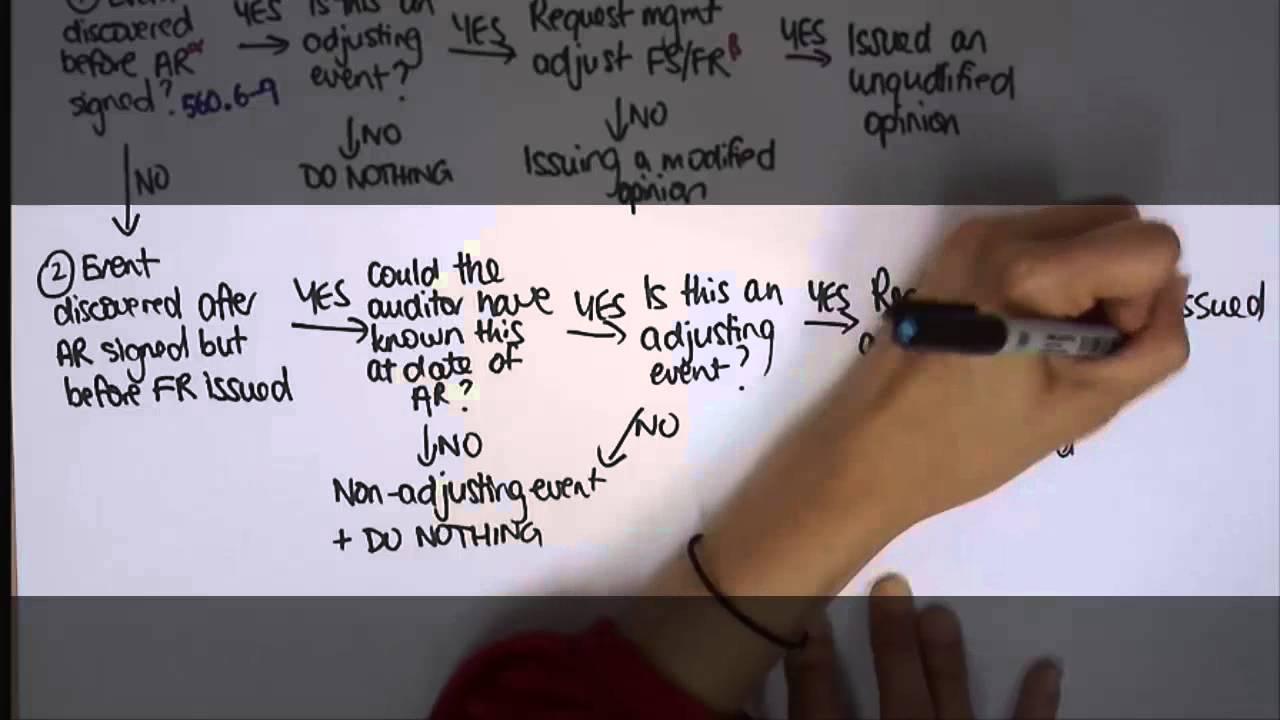 ① Event
discovered
before AR α
signed? 560.6-9
YES
Is this an
adjusting
event?
YES
Request mgmt
adjust FS/FR β
YES
Issued an
unqualified
opinion
NO
DO NOTHING
NO
Issuing a modified
opinion
NO
② Event
discovered after
AR signed but
before FR issued
YES
could the
auditor have
known this
at date of
AR?
YES
Is this an
adjusting
event?
YES
issued
NO
Non-adjusting event
+ DO NOTHING
NO